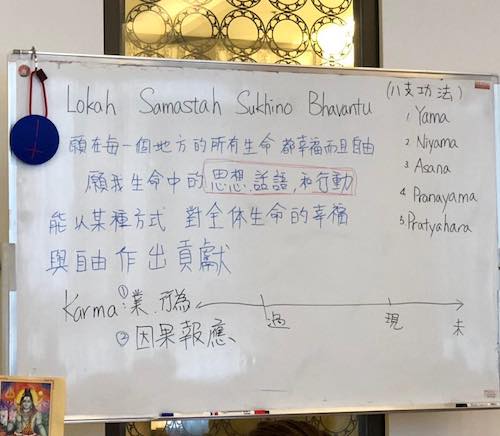 Lokah Samastah Sukhino Bhavantu
願在每一個地方的所有生命 都幸福而且自由
願我生命中的 思想, 話語, 和行動
能以某種方式 對全体生命的幸福
與自由作出貢獻
Karma: ①業. 行為
②因果報應
過 現 未
(八支功法)
1 Yama
2 Niyama
3 Asana
4 Pranayama
5 Pratyahara